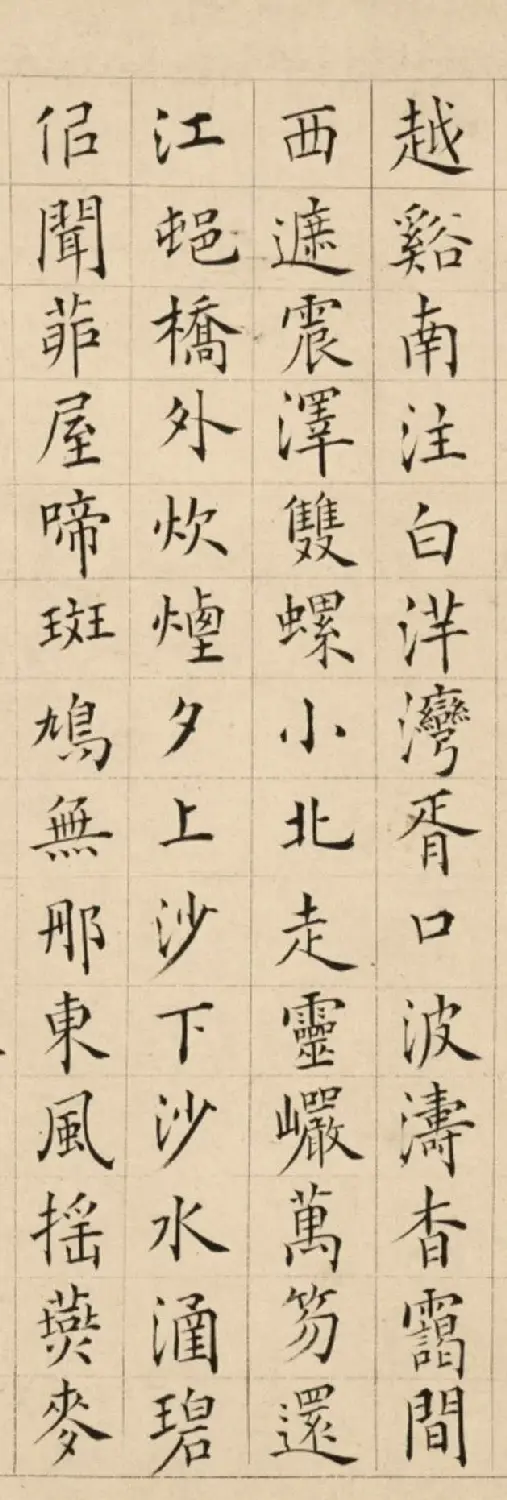 越谿南注白洋灣胥口波濤杳靄間
西遮震澤雙螺小北走靈巖萬笏還
江邨橋外炊煙夕上沙下沙水涵碧
佀聞茆屋啼斑鳩無那東風搖燕麥